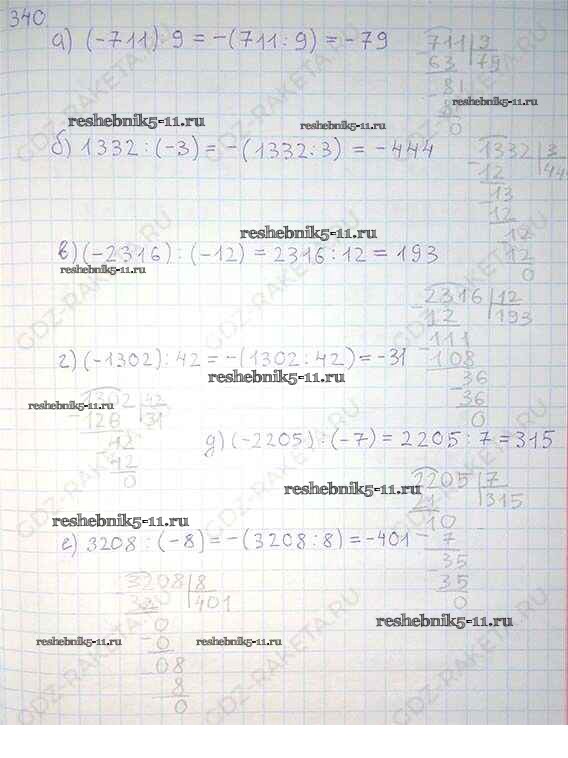 340
а) (-711) : 9 = -(711 : 9) = -79
711 9
63 79
81
reshebnik5-11.ru
0
reshebnik5-11.ru
reshebnik5-11.ru
б) 1332 : (-3) = -(1332 : 3) = -444
-1332 3
12 444
-13
12
-12
12
0
reshebnik5-11.ru
в) (-2316) : (-12) = 2316 : 12 = 193
reshebnik5-11.ru
-2316 12
12 193
111
-108
-36
36
0
г) (-1302) : 42 = -(1302 : 42) = -31
reshebnik5-11.ru
reshebnik5-11.ru
1302 42
-126 31
-42
42
0
д) (-2205) : (-7) = 2205 : 7 = 315
reshebnik5-11.ru
2205 7
21 315
10
-7
-35
35
0
reshebnik5-11.ru
е) 3208 : (-8) = -(3208 : 8) = -401
-3208 8
32 401
0
-0
08
8
0
reshebnik5-11.ru
reshebnik5-11.ru
reshebnik5-11.ru
GDZ-RAKETA.RU